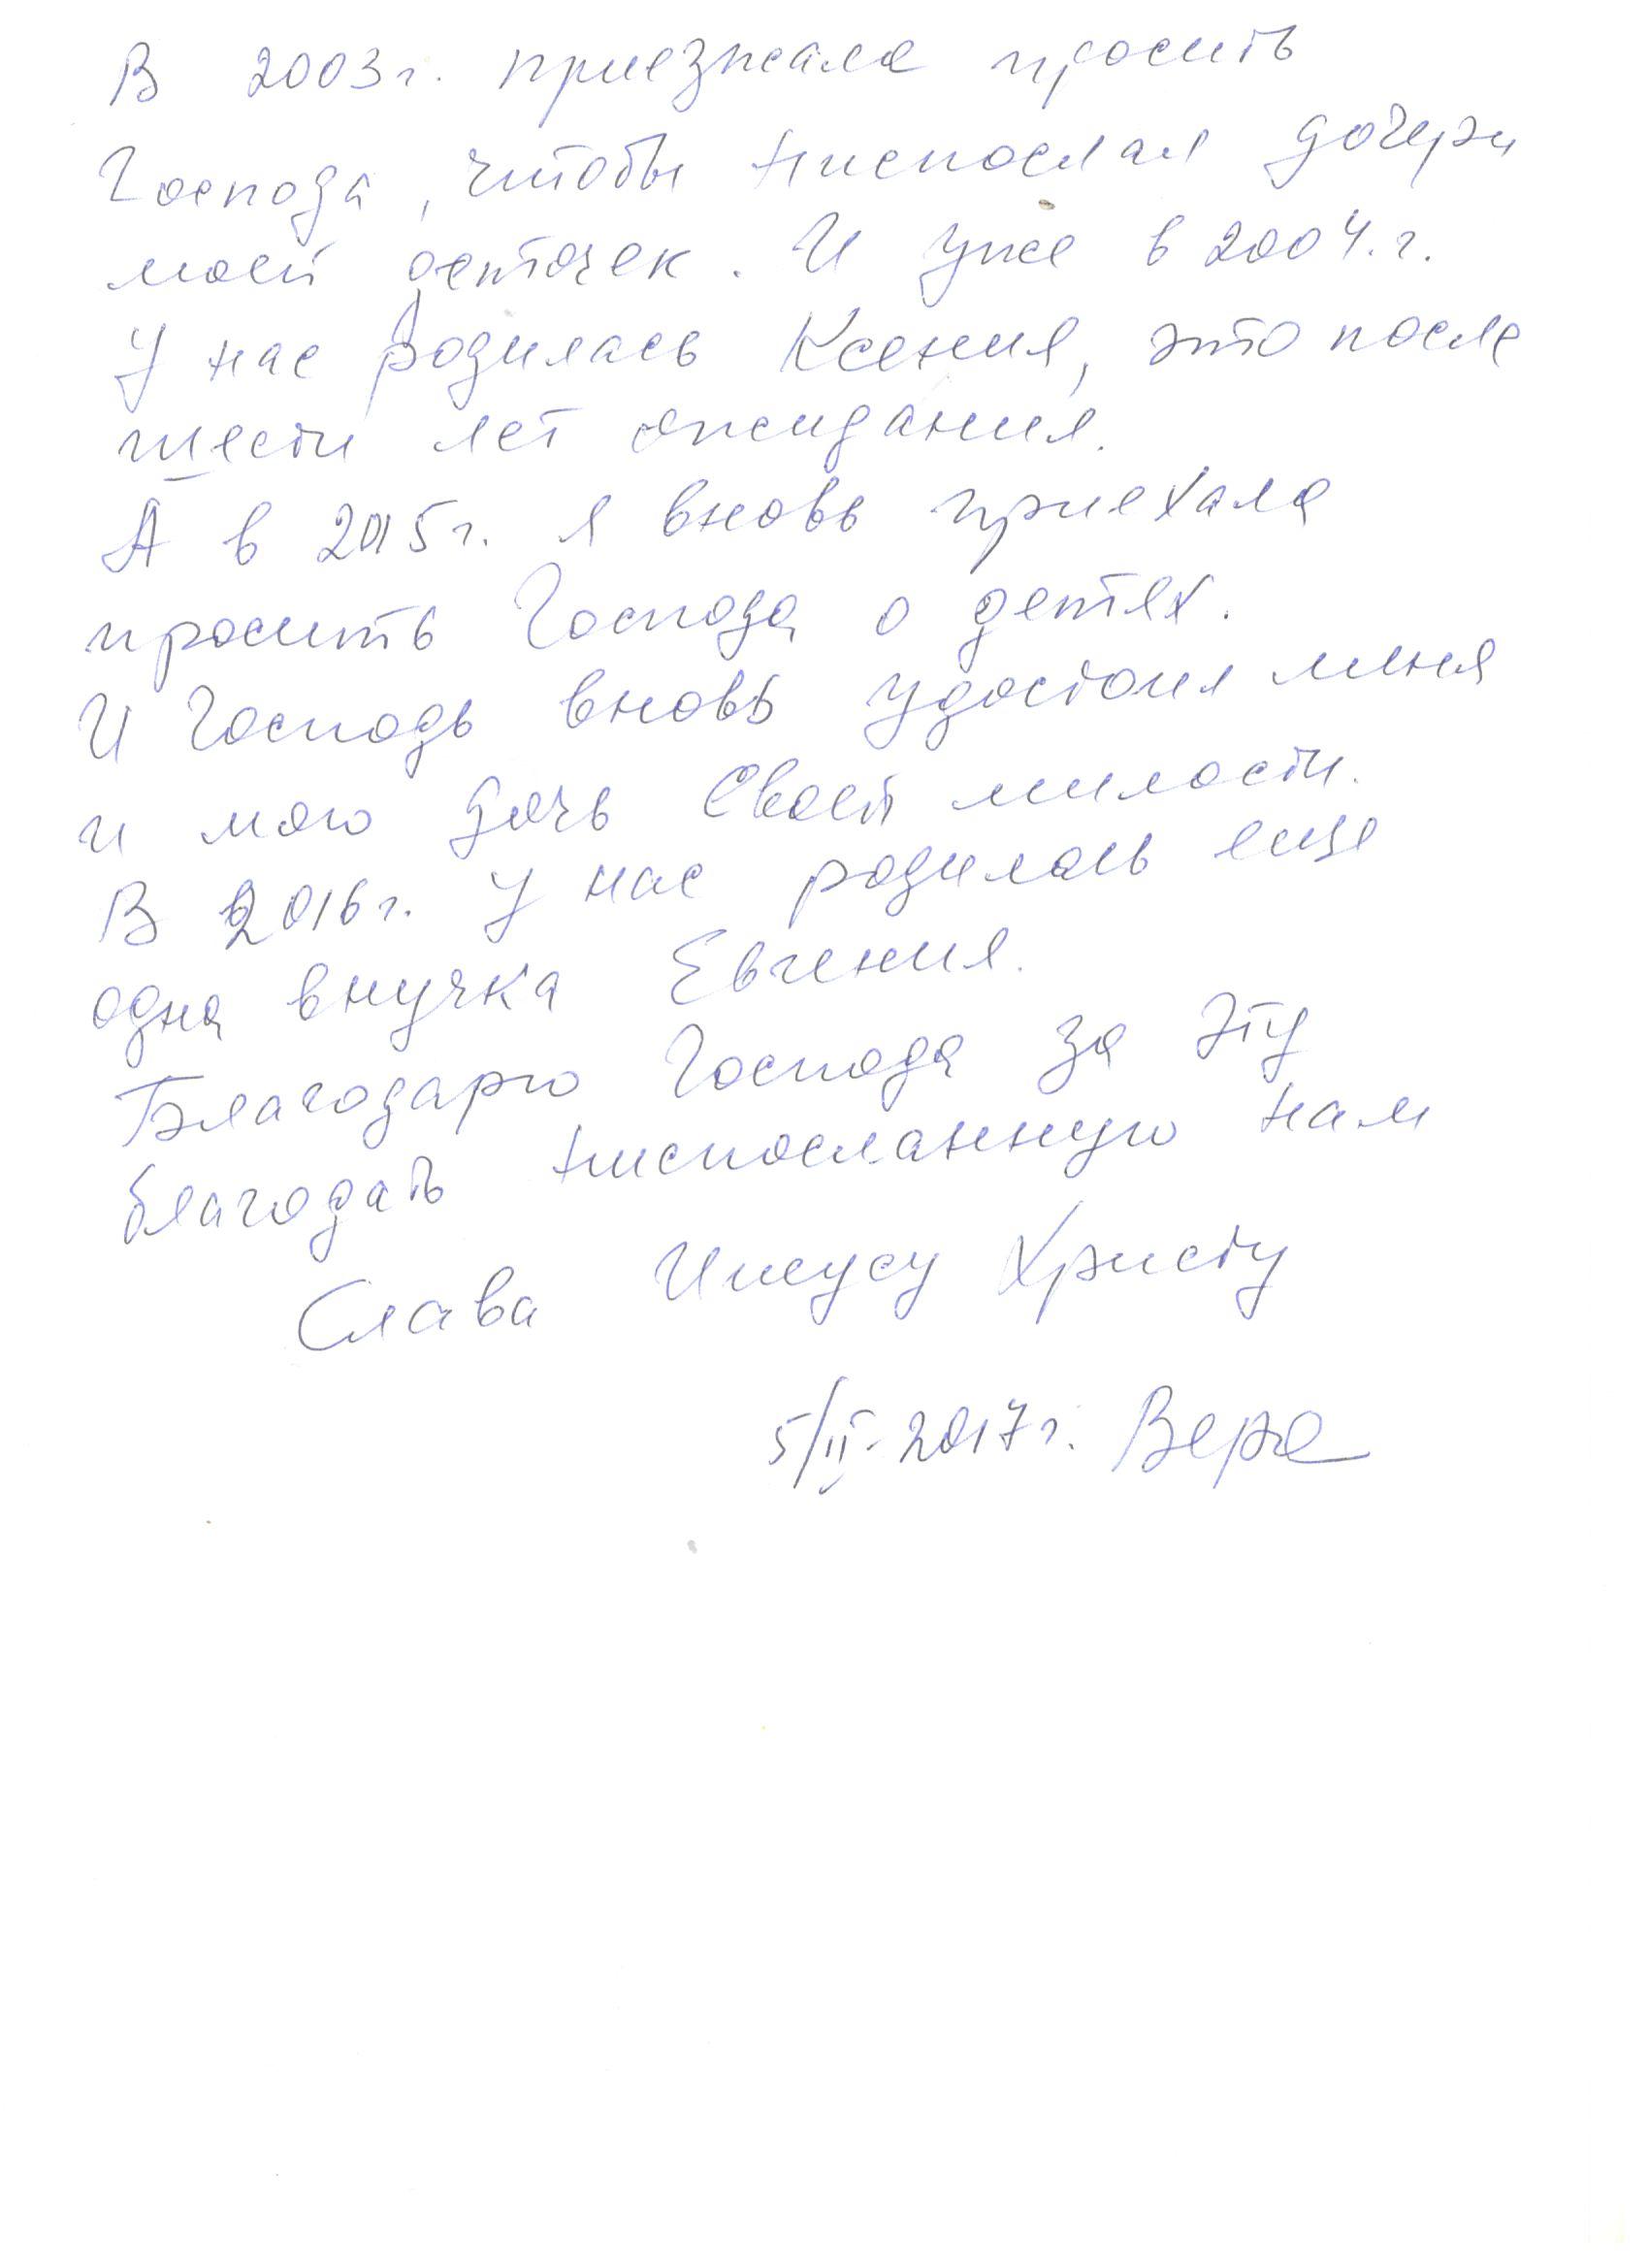 В 2003г. приезжала просить
Господа, чтобы ниспослал дочери
моей деточек. И уже в 2004.г.
У нас родилась Ксения, это после
шести лет ожидания.
А в 2015г. я вновь приехала
просить Господа о детях.
И Господь вновь удостоил меня
и мою дочь Своей милости.
В 2016г. У нас родилась еще
одна внучка Евгения.
Благодарю Господа за эту
благодать ниспосланную нам
Слава Иисусу Христу
5/II-2017г. Вера